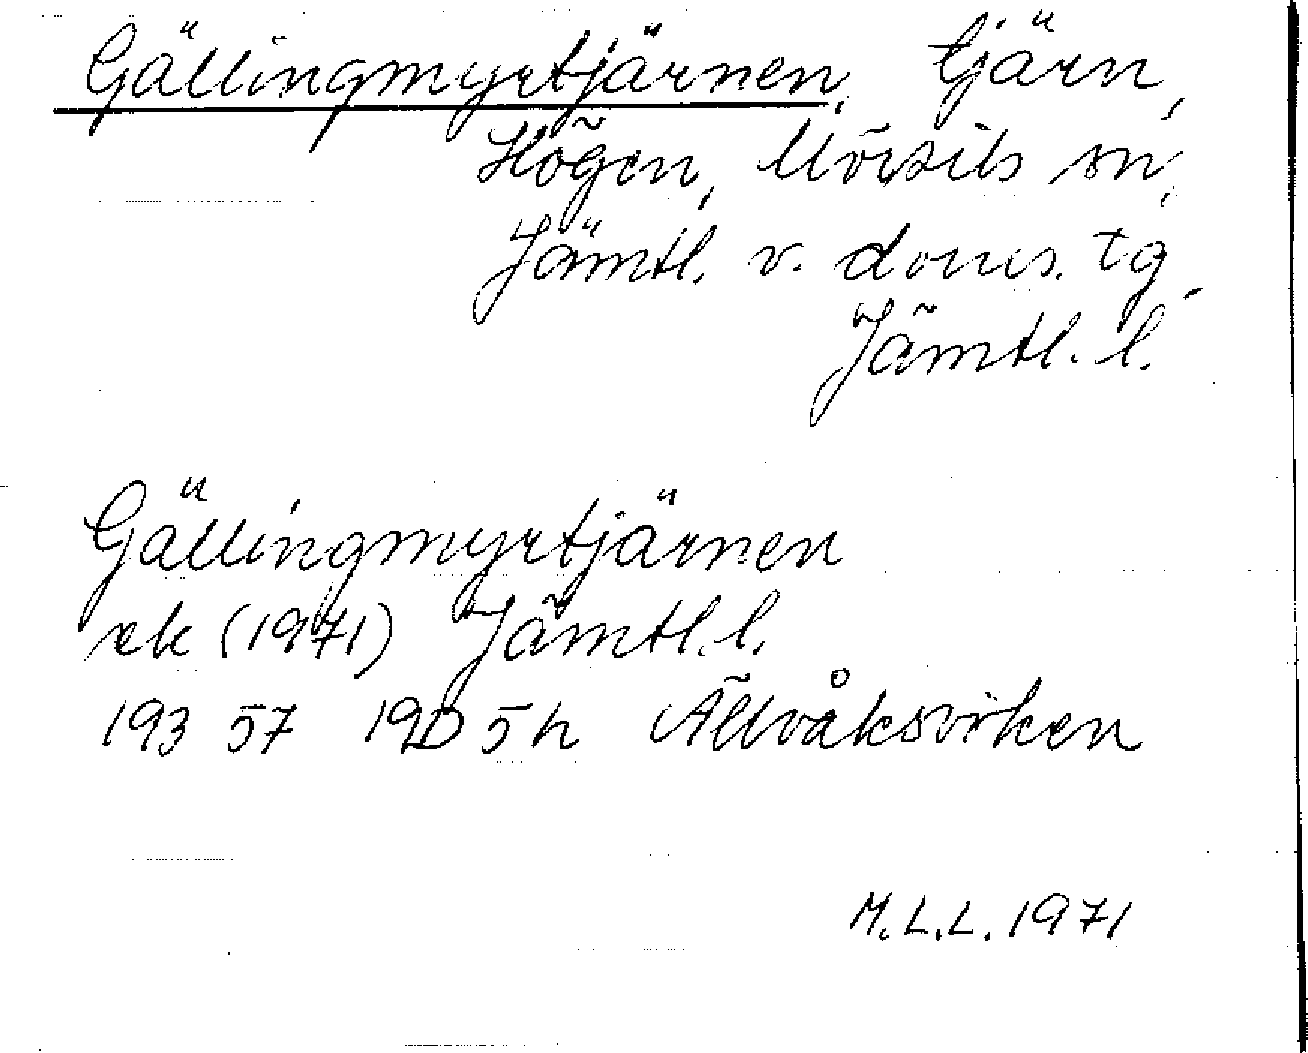 Gällingmyrtjärnen, tjärn,
Högen, Mörsils sn,
Jämtl. v. doms. tg,
Jämtl. l.
Gällingmyrtjärnen
ek (1971) Jämtl. l.
193 57 19D 5h Ällvåksviken
M.L.L. 1971